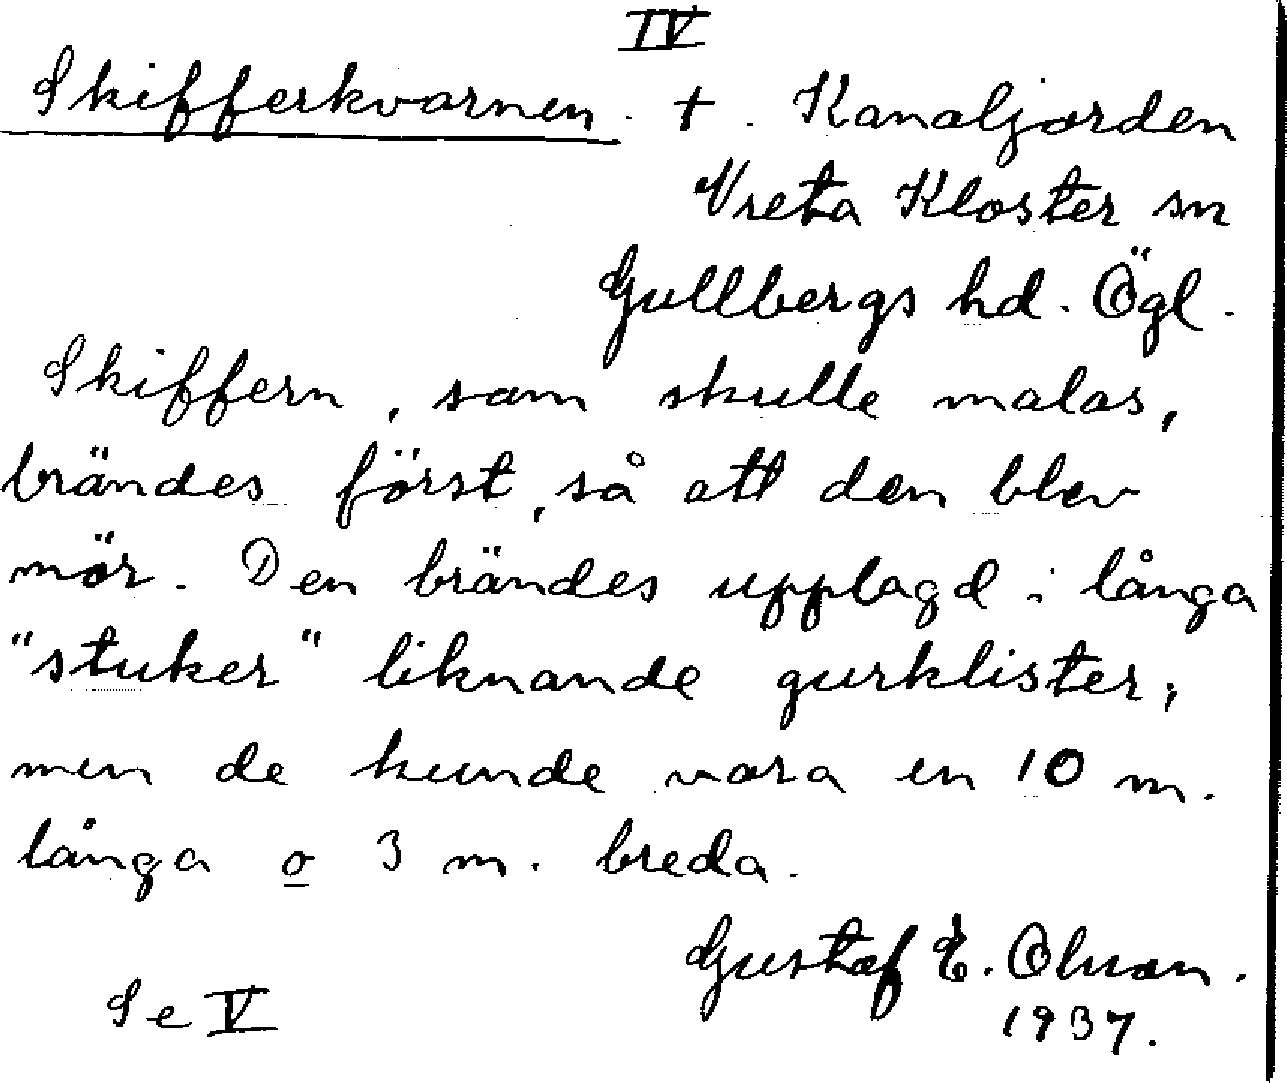 IV
Skifferkvarnen. +. Kanaljorden
Vreta Kloster sn
Gullbergs hd. Ögl.
Skiffern, som skulle malas,
brändes först, så att den blev
mör. Den brändes upplagd i långa
"stuker" liknande gurklister,
men de kunde vara en 10 m.
långa o 3 m. breda.
Gustaf E. Olsson.
1937.
Se V